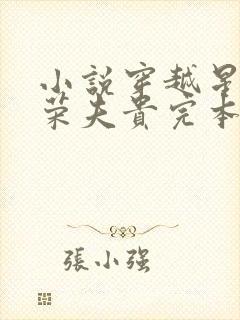 小說穿越星
荣夫貴完本
張小强